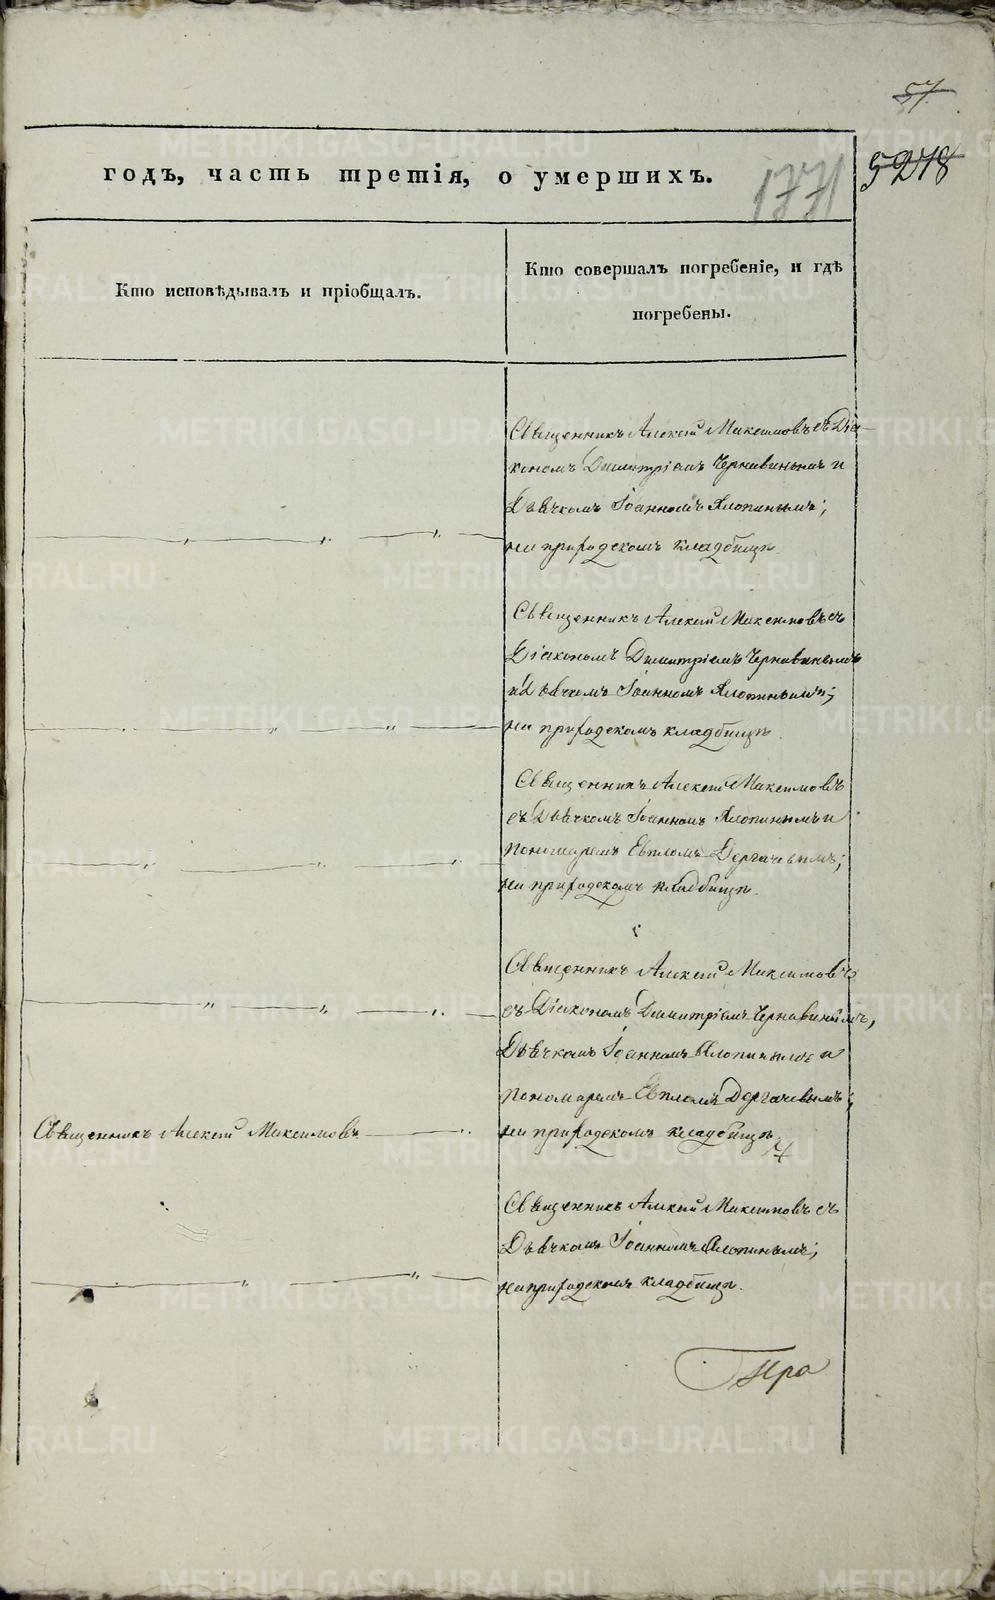 57
5218
1771
годъ, часть третія, о умершихъ.
Кто исповѣдывалъ и пріобщалъ.
Кто совершалъ погребеніе, и гдѣ
погребены.
Священникъ Алексій Максимовъ съ Діа-
кономъ Димитріемъ Чернавинымъ и
Дьячкомъ Іоанномъ Хлопинымъ;
на приходскомъ кладбищѣ.
Священникъ Алексій Максимовъ съ
Діакономъ Димитріемъ Чернавинымъ
и Дьячкомъ Іоанномъ Хлопинымъ;
на приходскомъ кладбищѣ.
Священникъ Алексій Максимовъ
съ Дьячкомъ Іоанномъ Хлопинымъ и
Пономаремъ Евпломъ Дергачевымъ;
на приходскомъ кладбищѣ.
Священникъ Алексій Максимовъ
съ Діакономъ Димитріемъ Чернавинымъ,
Дьячкомъ Іоанномъ Хлопинымъ и
Пономаремъ Евпломъ Дергачевымъ;
Священникъ Алексій Максимовъ
на приходскомъ кладбищѣ.
Священникъ Алексій Максимовъ съ
Дьячкомъ Іоанномъ Хлопинымъ;
на приходскомъ кладбищѣ.
METRIKI.GASO-URAL.RU